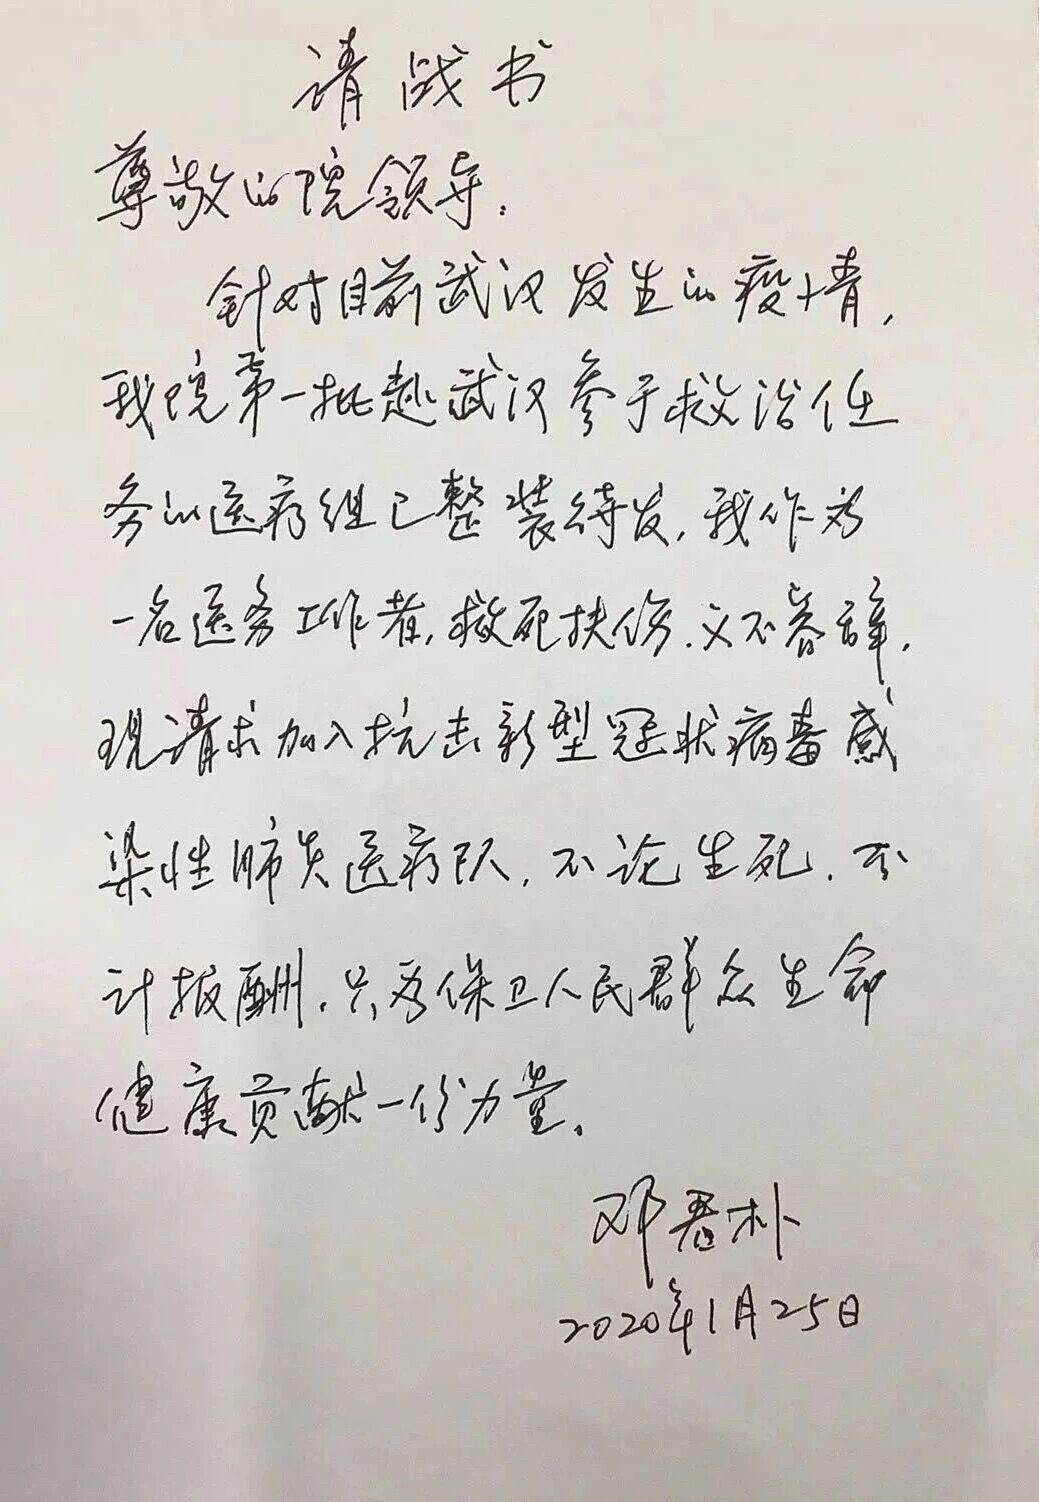 请战书
尊敬的院领导：
针对目前武汉发生的疫情，
我院第一批赴武汉参于救治任
务的医疗组已整装待发，我作为
一名医务工作者，救死扶伤，义不容辞，
现请求加入抗击新型冠状病毒感
染性肺炎医疗队，不论生死，不
计报酬，只为保卫人民群众生命
健康贡献一份力量。
邓 朴
2020年1月25日